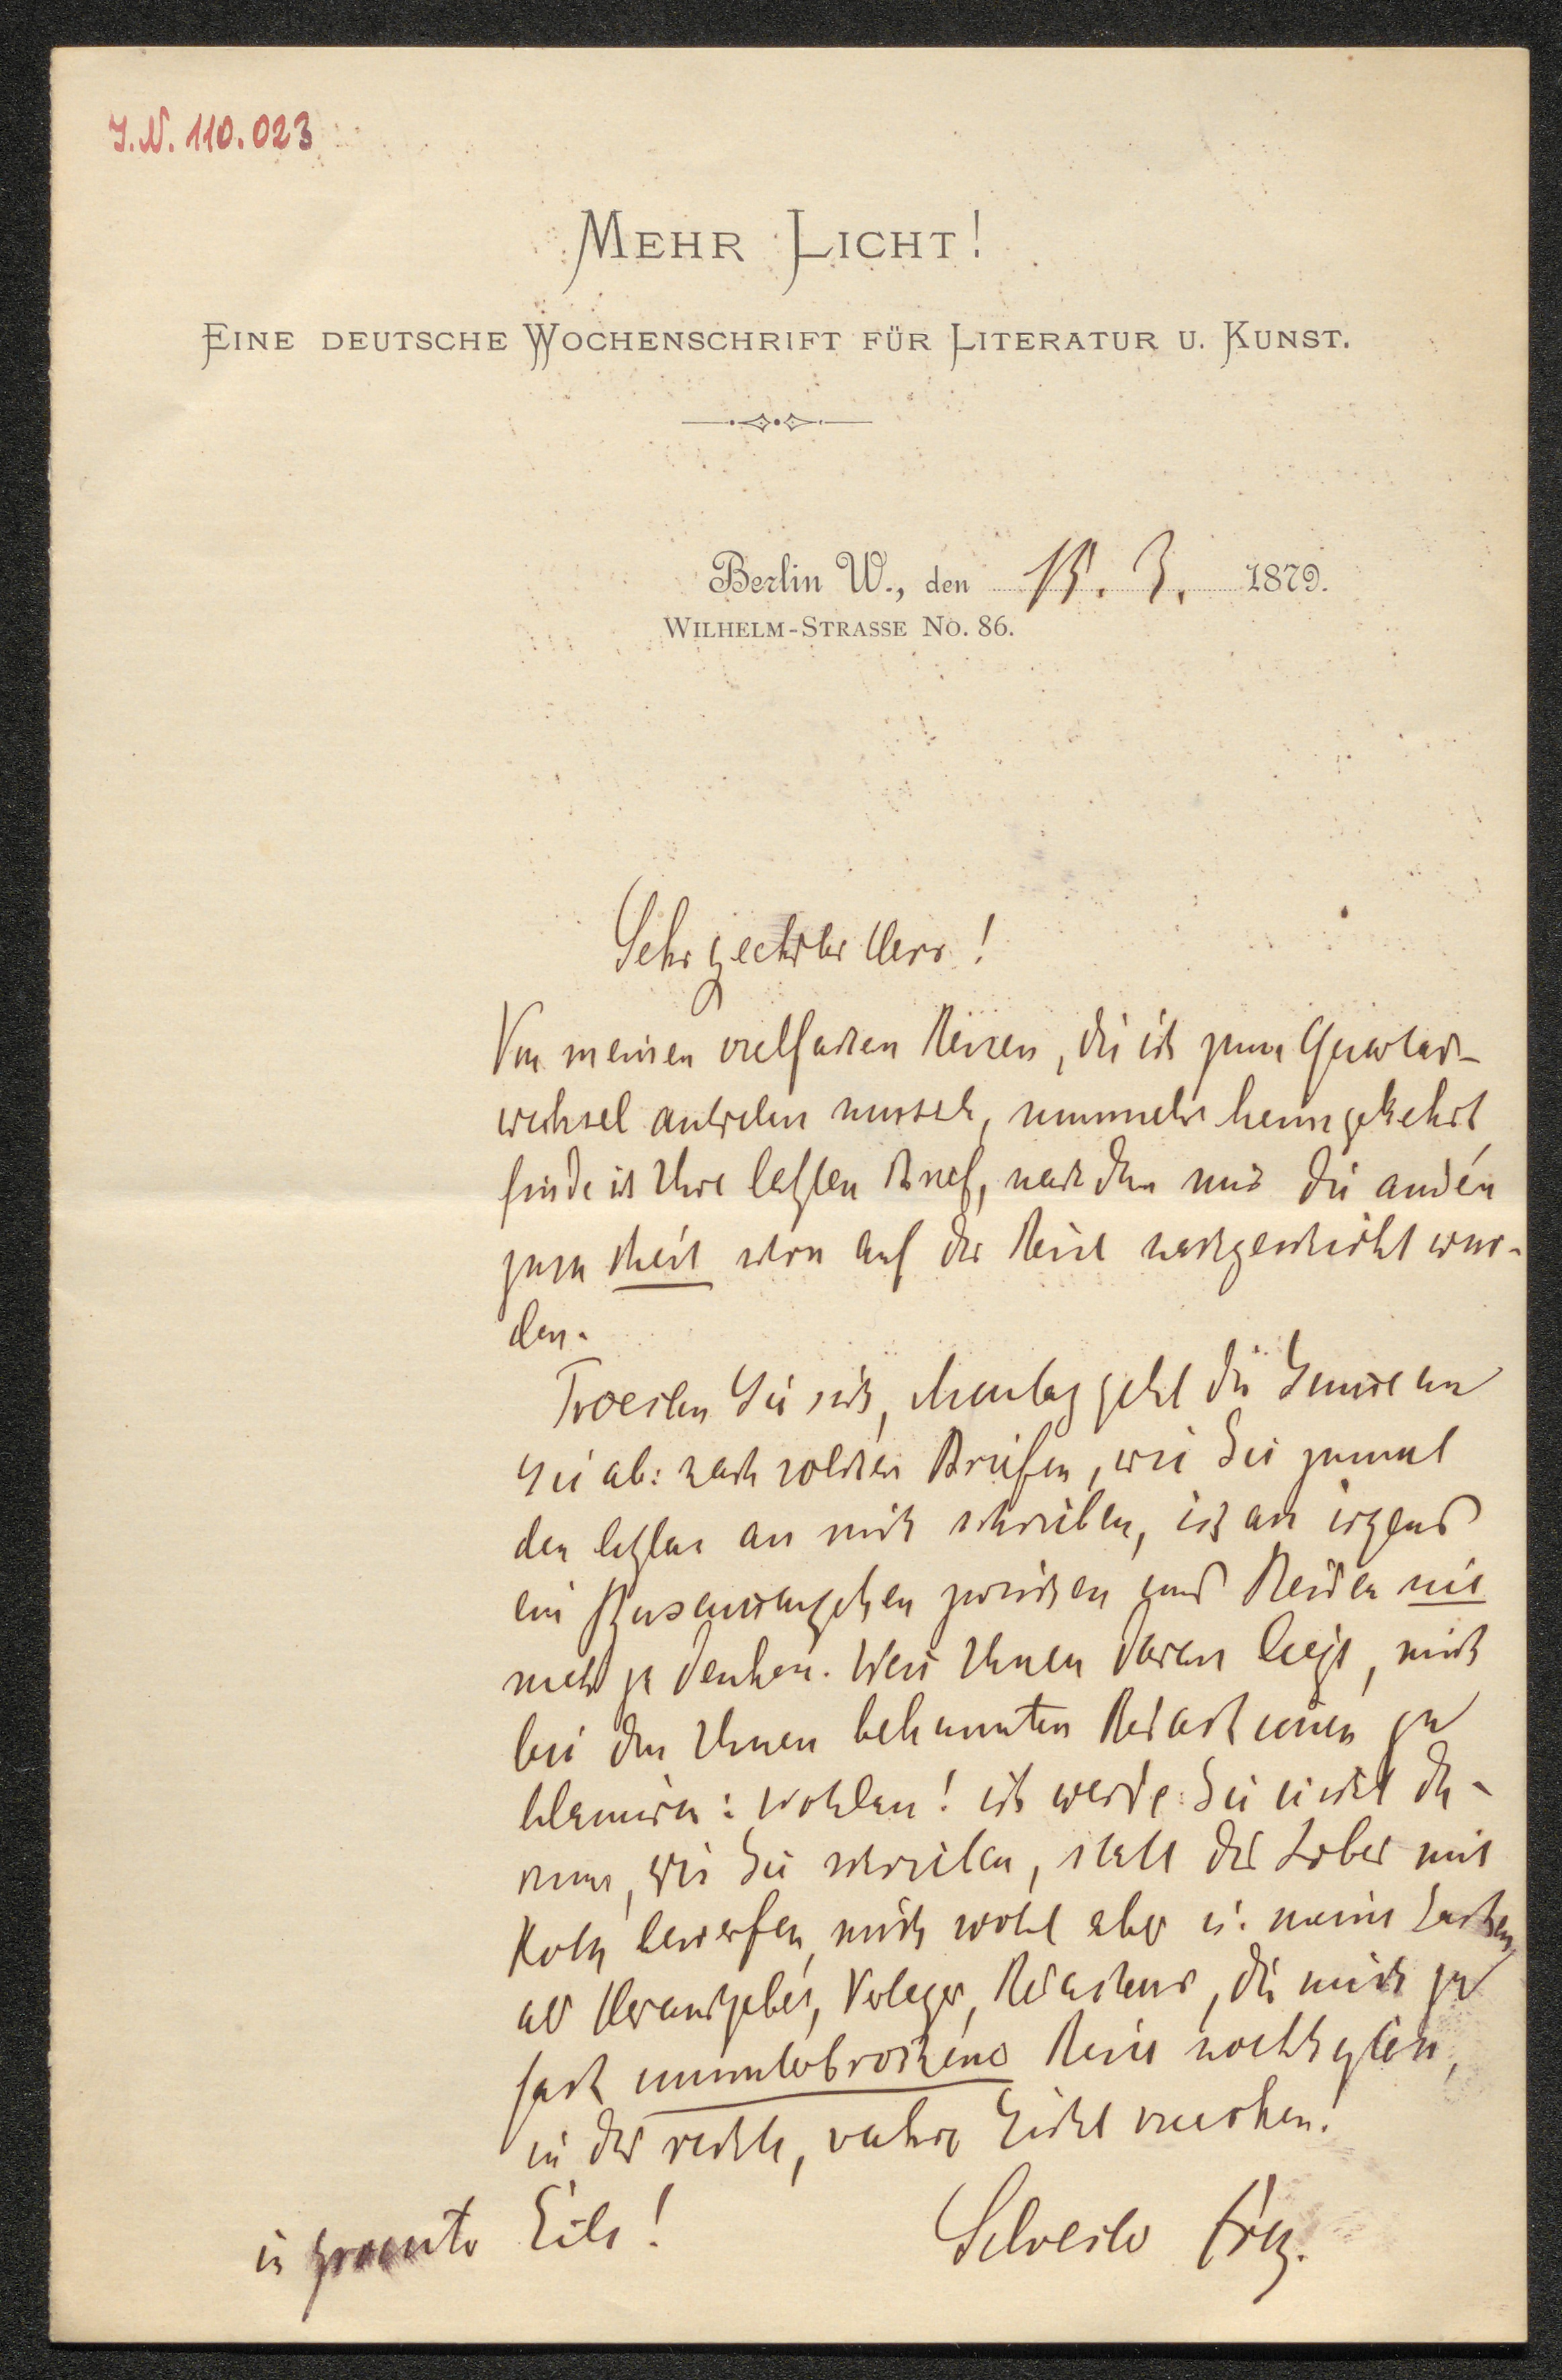 I.N. 110.023
MEHR LICHT!
EINE DEUTSCHE WOCHENSCHRIFT FÜR LITERATUR U. KUNST.
Berlin W., den 15. 3. 1879.
WILHELM-STRASSE NO. 86.
Sehr geehrter Herr!
Von meinen vielfachen Reisen, die ich zum Quartar-
wechsel antreten musste, nunmehr heimgekehrt
finde ich Ihre letzten Brief, nachdem mir die anden
zum theil schon auf der Reise nachgeschickt wur-
den.
Troesten Sie sich, Montag geht die an
Sie ab: nach solchen Briefen, wie Sie zumal
den letzten an mich schreiben, ist an irgend
ein Zusammengehen zwischen uns Beiden nie
mehr zu denken. Wenn Ihnen daran liegt, mich
bei den Ihnen bekannten Redactionen zu
blamiren: wohlan! ich werde Sie nicht da-
rum, wie Sie schreiben, statt des Lobes mit
Koth bewerfen, mich wohl aber u. meine Sachen,
als Herausgeber, Verleger, Redacteur, die mich zu
fast ununterbrochene Reise noethigten,
in das rechte, wahre Licht ruecken.
in Eile!
Silvester Frey.